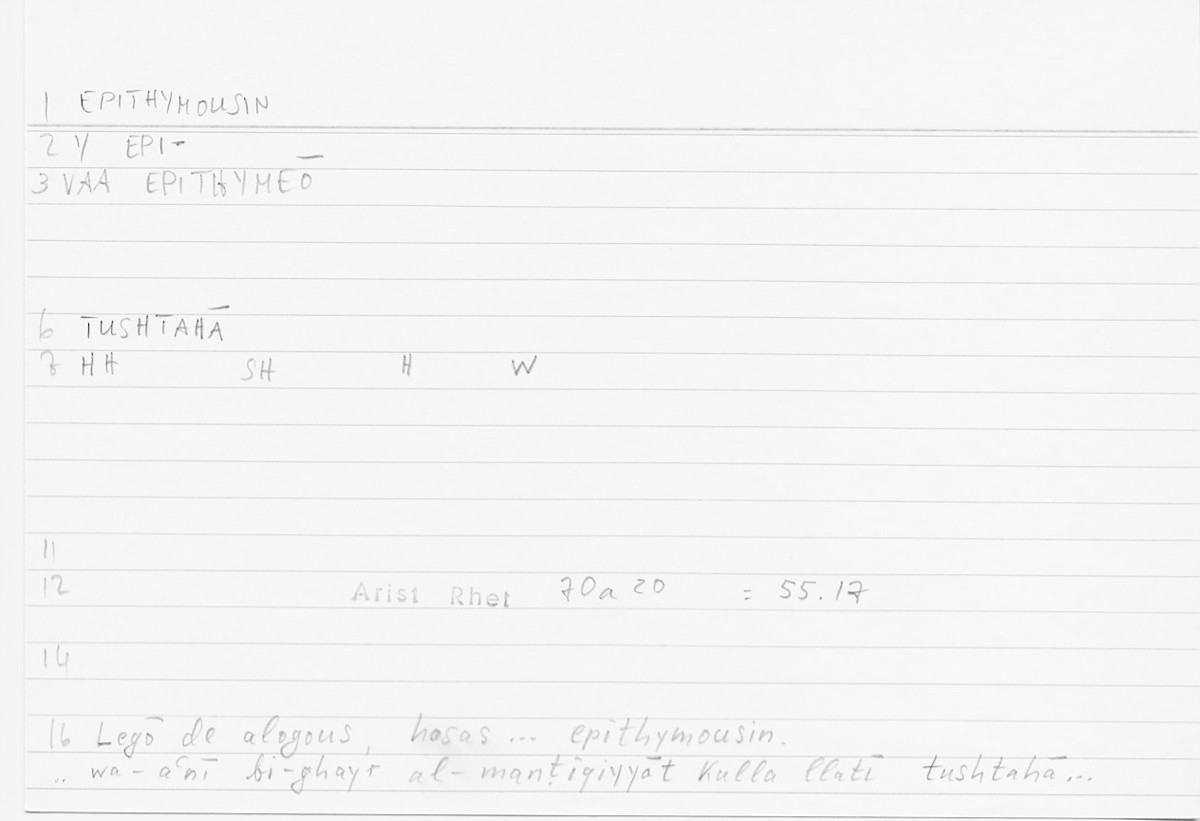 1 EPITHYMOUSIN
2 Y EPI-
3 VAA EPITHYMEŌ
6 TUSHTAHĀ
7 HH SH H W
11
12 Arist Rhet 70a20 = 55.17
14
16 Legō de alogous, hosas ... epithymousin.
.. wa-aʿnī bi-ghayr al-manṭiqiyyāt kulla llatī tushtahā...